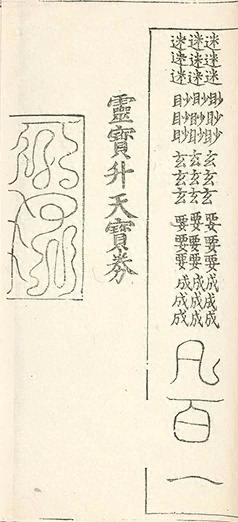 迷迷迷眇眇眇玄玄玄要要要成成成
迷迷迷眇眇眇玄玄玄要要要成成成
迷迷迷眇眇眇玄玄玄要要要成成成
凡百一
靈寶升天寶券